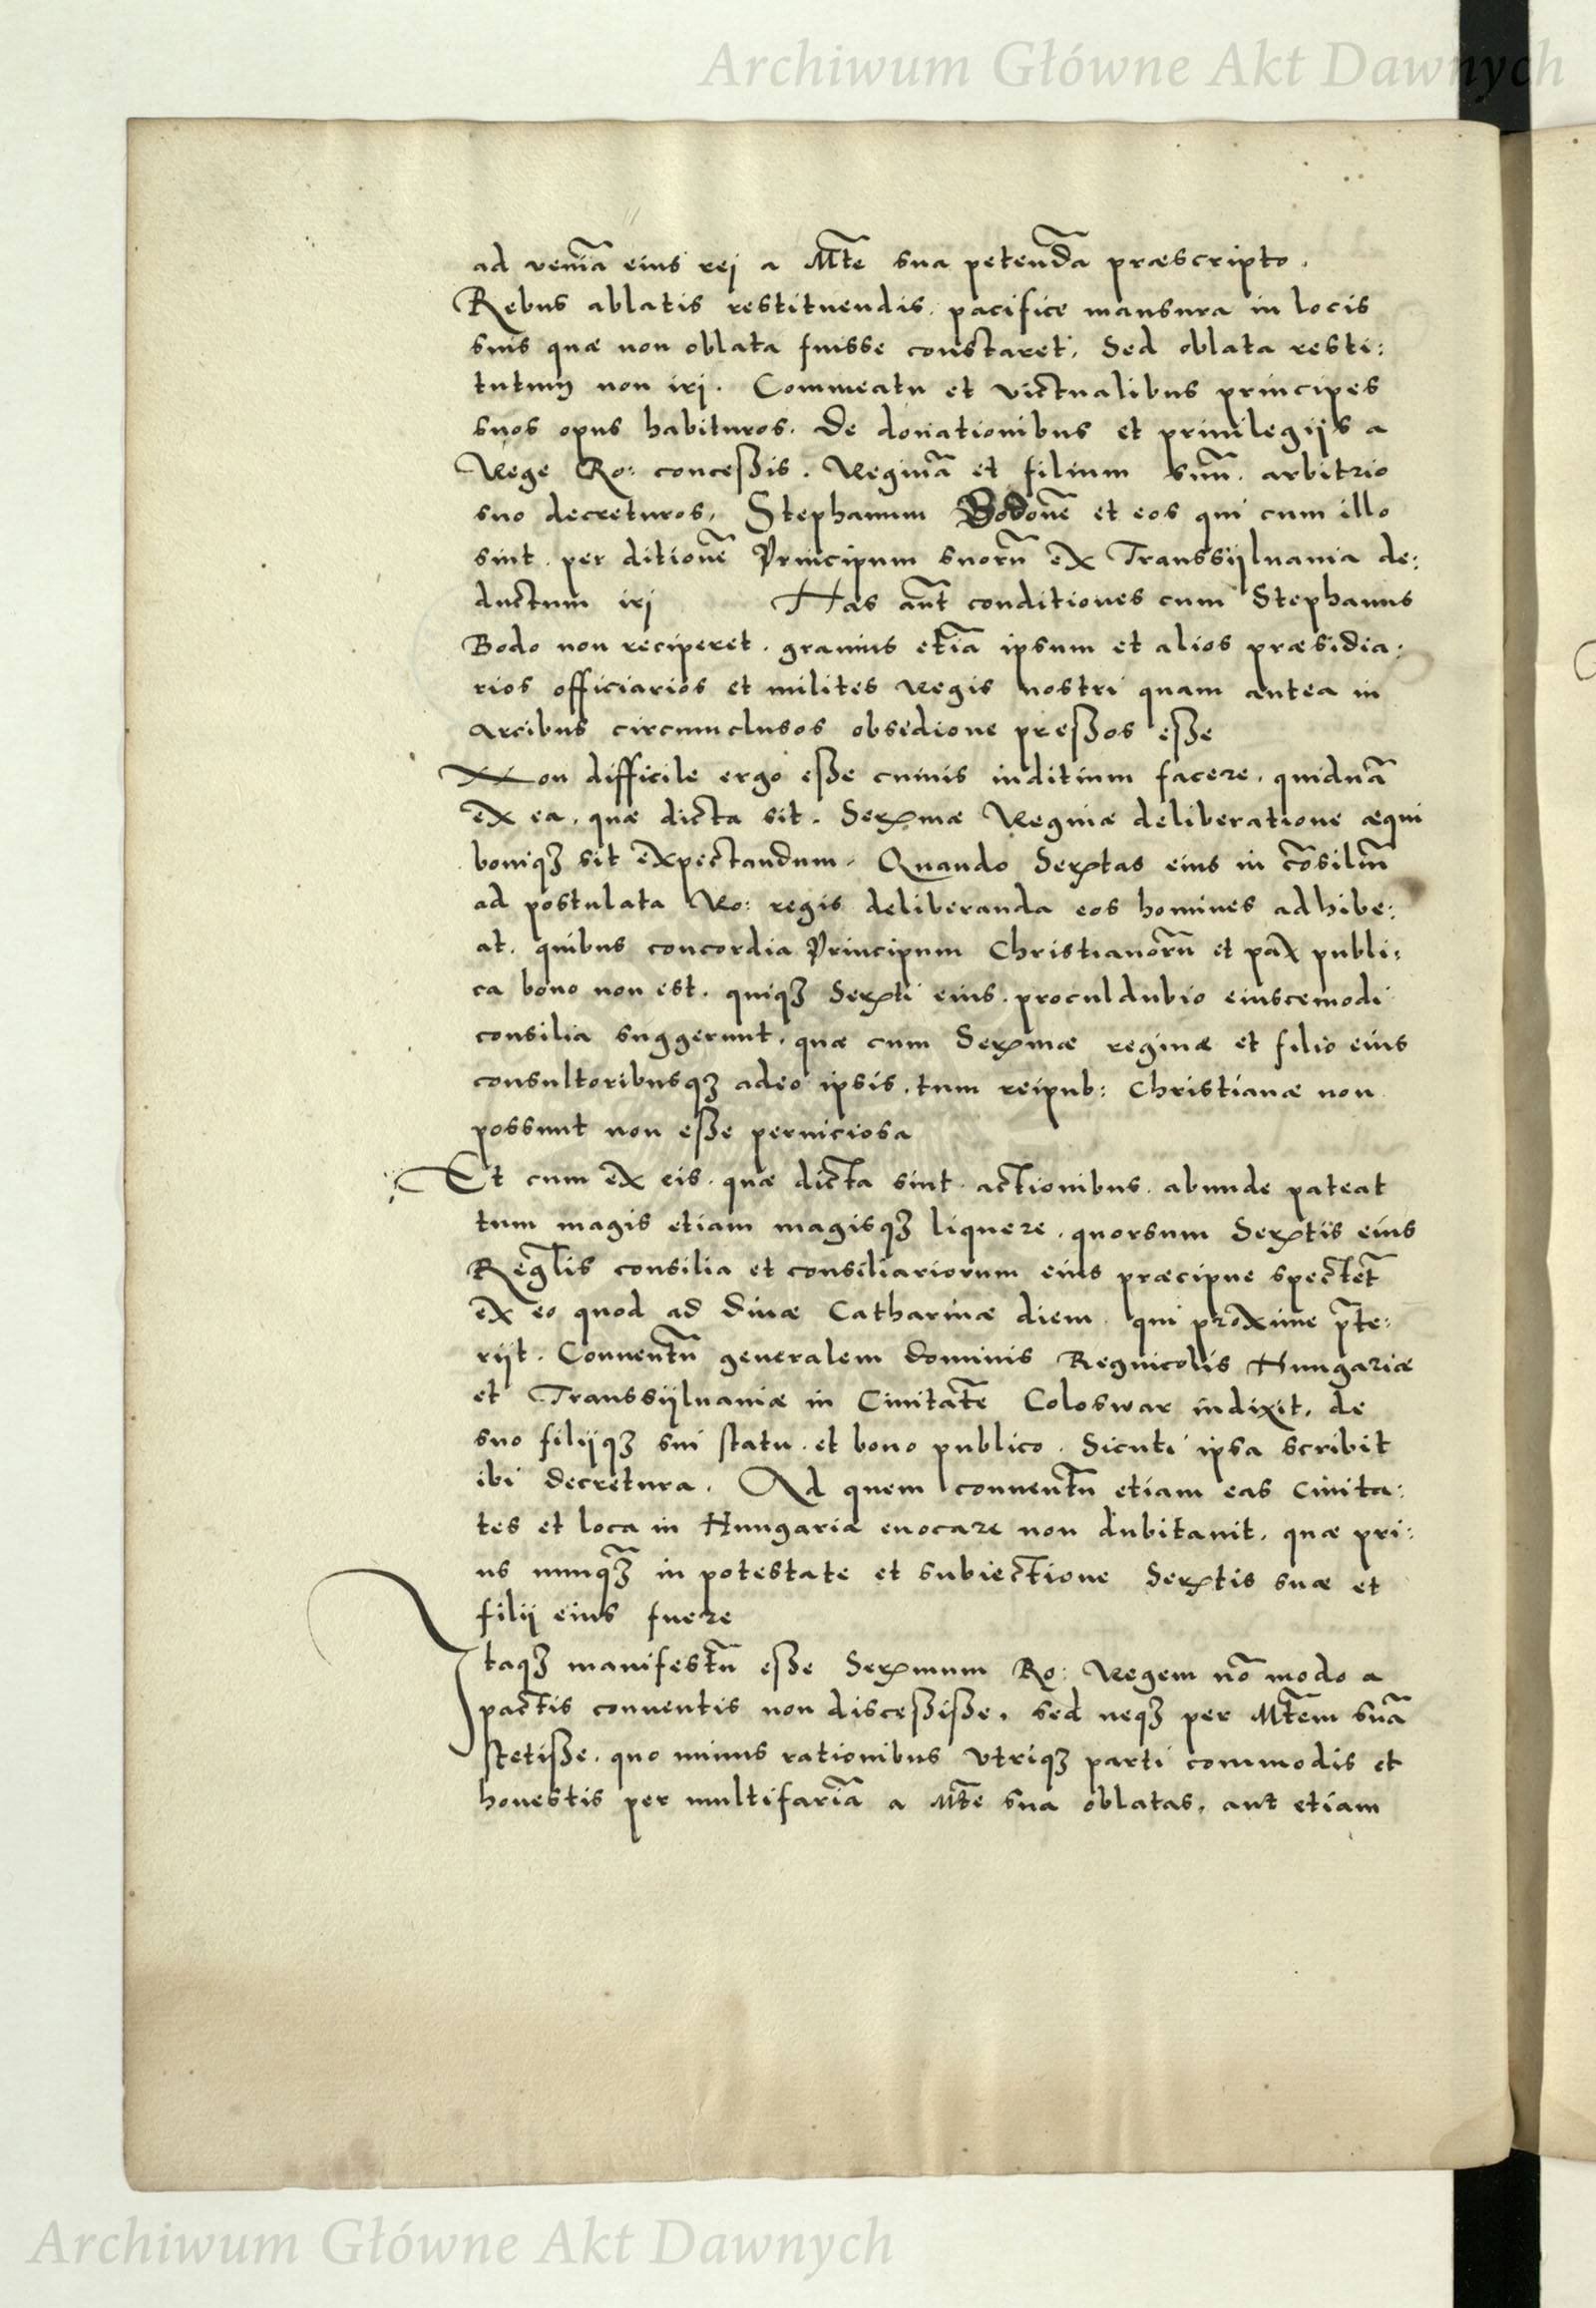 Archiwum Główne Akt Dawnych
ad veniā eius rej a Mt̃e sua petendā præscripto.
Rebus ablatis restituendis. pacifice mansura in locis
suis quæ non oblata fuisse constaret, Sed oblata resti:
tutum non irj. Commeatu et victualibus principes
suos opus habituros. De donationibus et priuilegijs a
Rege Ro: conceßis. Reginā et filium suū. arbitrio
suo decreturos, Stephanum Bodonē et eos qui cum illo
sint. per ditionē Principum suorū ex Transsijluania de:
ductum irj Has aūt conditiones cum Stephanus
Bodo non reciperet. grauius etiā ipsum et alios præsidia:
rios officiarios et milites Regis nostri quam antea in
Arcibus circumclusos obsedione preßos eße
Non difficile ergo eße cuiuis inditium facere, quidnā
ex ea, quæ dicta sit. Serᵐmæ Reginæ deliberatione æqui
boniqꝫ sit expectandum. Quando Serᵗtas eius in cōsiliū
ad postulata Ro: regis deliberanda eos homines adhibe:
at. quibus concordia Principum Christianorū et pax publi:
ca bono non est. quiqꝫ Serᵗti eius. proculdubio eiuscemodi
consilia suggerunt, quæ cum Serᵐmæ reginæ et filio eius
consultoribusqꝫ adeo ipsis, tum reipub: Christianæ non
possunt non eße perniciosa
Et cum ex eis. quæ dicta sint. actionibus. abunde pateat
tum magis etiam magisqꝫ liquere. quorsum Serᵗtis eius
Reg̃lis consilia et consiliariorum eius præcipue spectēt
ex eo quod ad Diuæ Catharinæ diem. qui proxime p̄te:
rijt. Conuentū generalem dominis Regnicolis Hungariæ
et Transsijluaniæ in Ciuitatē Coloswar indixit, de
suo filijqꝫ sui statu. et bono publico. Sicuti ipsa scribit
ibi decretura. Ad quem conuentū etiam eas Ciuita:
tes et loca in Hungaria euocare non dubitauit, quæ pri:
us nunq̄ꝫ in potestate et subiectione Serᵗtis suæ et
filij eius fuere
Itaqꝫ manifestū eße Serᵐmum Ro: Regem nō modo a
pactis conuentis non disceßiße, sed neqꝫ per Mt̃em suā
stetiße. quo minus rationibus vtriqꝫ parti commodis et
honestis per multifariā a Mt̃e sua oblatas, aut etiam
Archiwum Główne Akt Dawnych